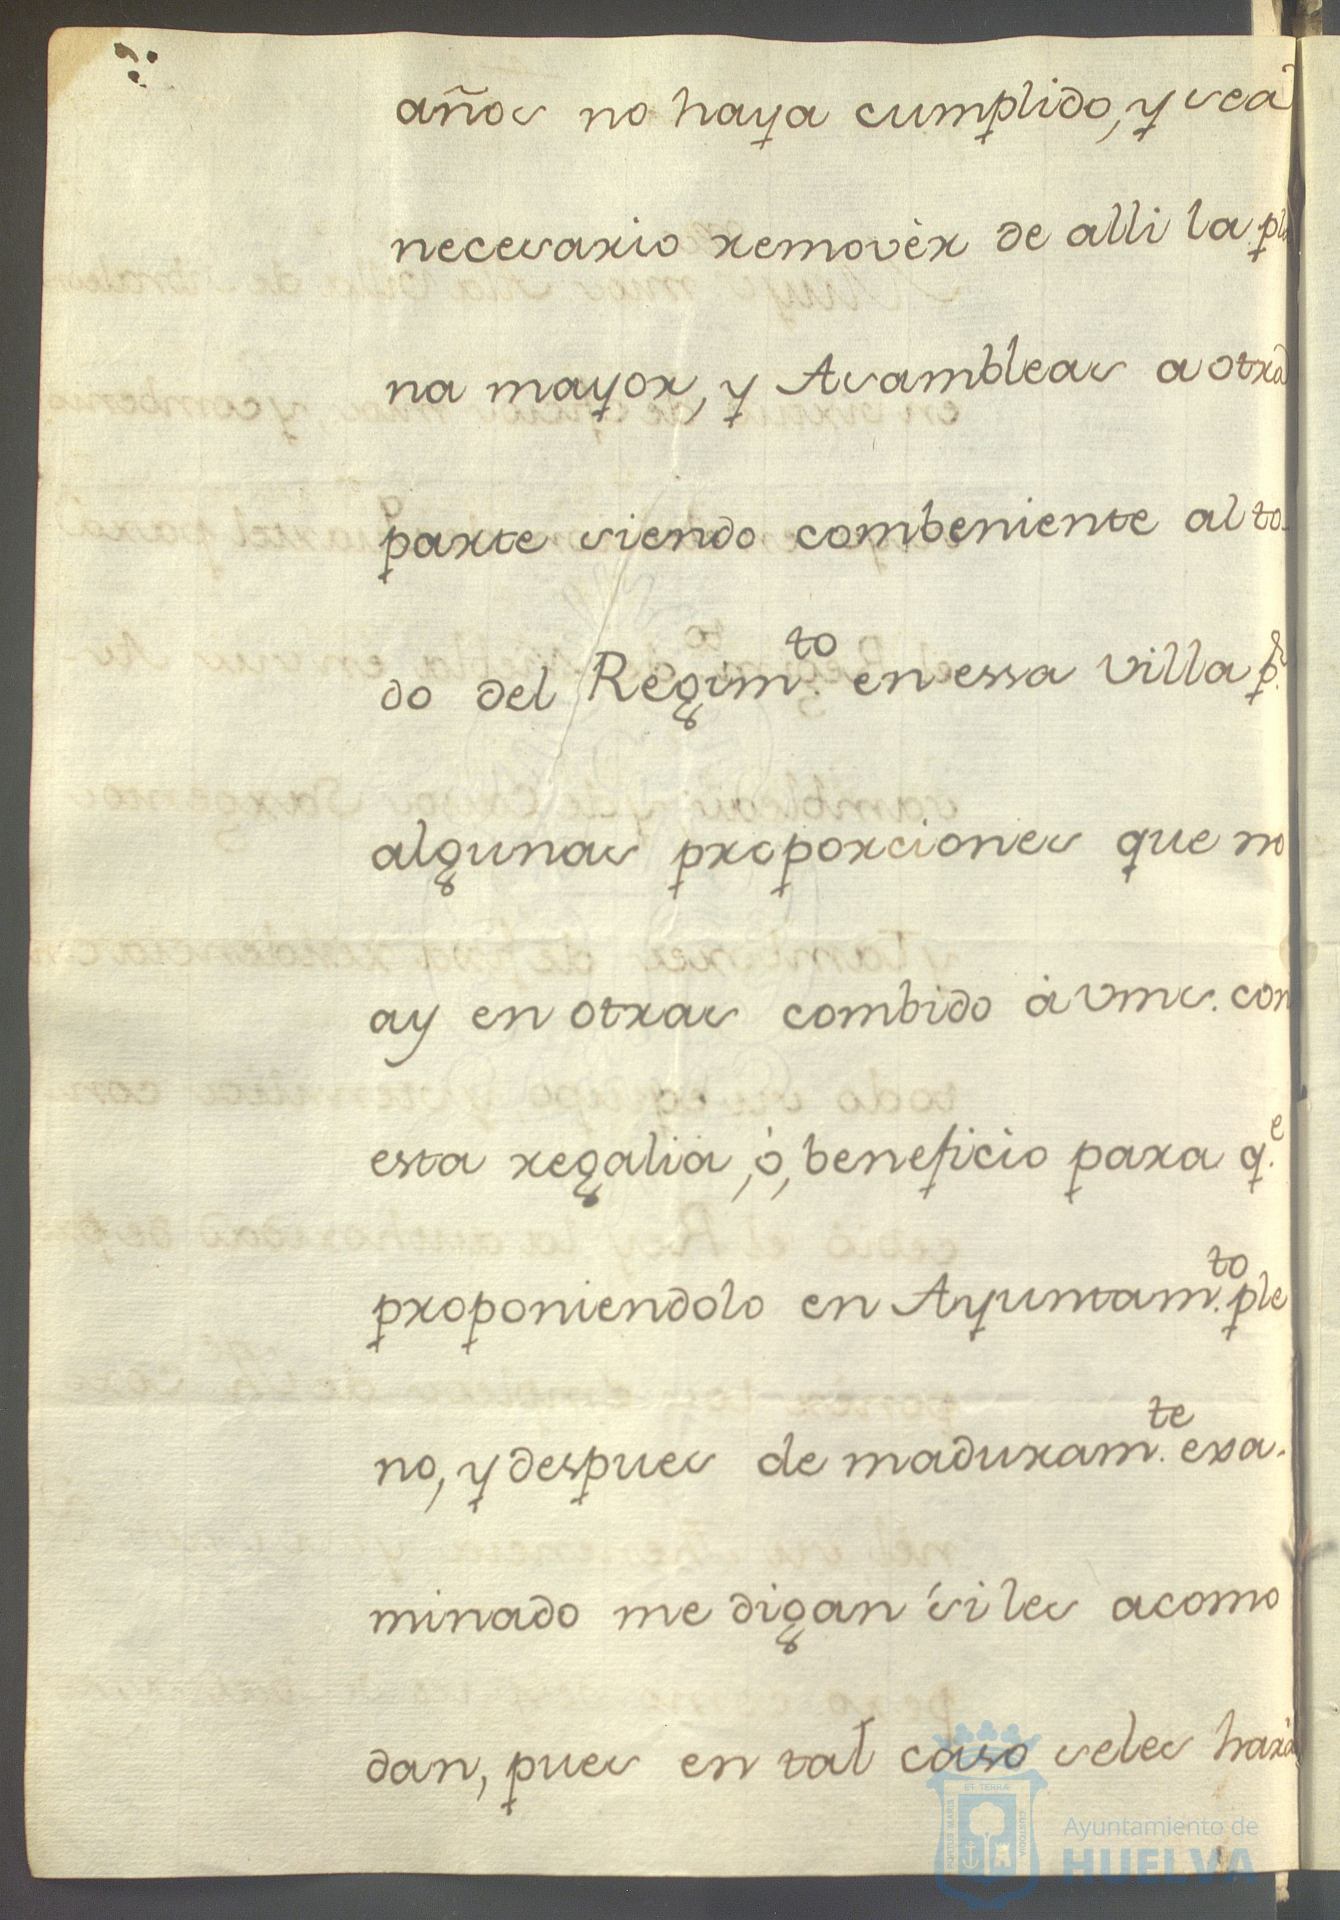 años no haya cumplido, y sea
necesario removèr de alli la pla
na mayor, y Asambleas a otra
parte siendo combeniente al to-
do del Regim.to en essa Villa p.r
algunas proporciones que no
ay en otras combido à Vms. con
esta regalia, ò, beneficio para q.e
proponiendolo en Ayuntam.to ple
no, y despues de maduram.te exa-
minado me digan si les acomo
dan, pues en tal caso seles harà
ET TERRÆ
PORTUS MARIS
CUSTODIA
Ayuntamiento de
HUELVA